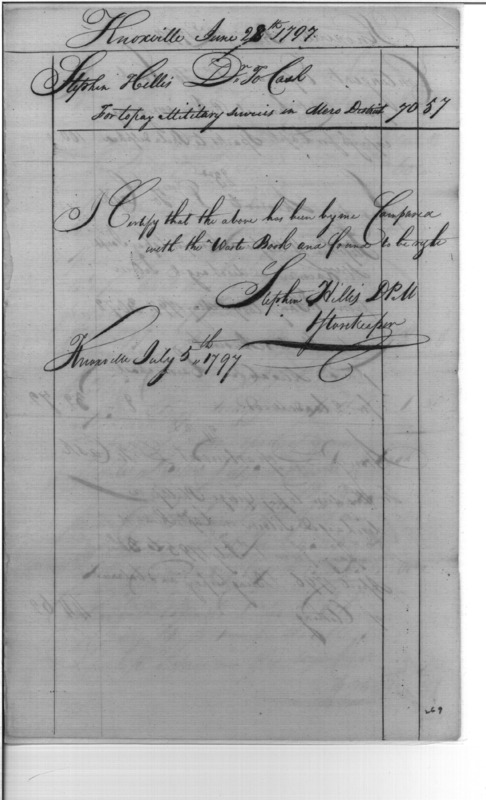 Knoxville June 28th 1797
Stephen Hillis Dr. To Cash
For to pay Military Services in Mero District 70 57
I Certify that the above has been by me Compared
with the Waste Book and found to be right
Stephen Hillis D P M
Storekeeper
Knoxville July 5th 1797